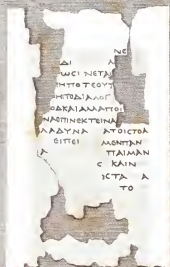 ΝΕ
ΔΙ Α
ΩCΙΝΕΤΑΙ
ΗΠΟΤΕΟΥΤ
ΗΤΟΔΙΑΛΟΓ
ΟΔΚΑΙΑΜΑΠΟΙ
ΝΑΟΠΙΝΕΚΤΕΙΝΑ
ΑΔΥΝΑ ΑΤΟΙCΤΟΑ
ΕΙΠΕΙ ΜΕΝΠΑΝ
Α ΠΑΙΜΑΝ
C ΚΑΙΝ
ΙCΤΑ Α
ΤΟ